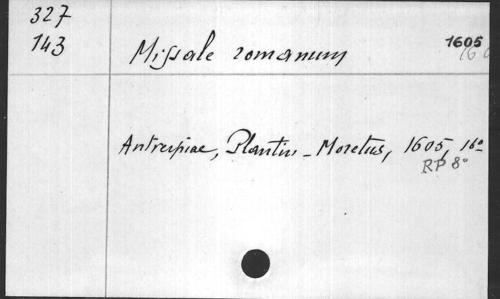 327
143
Missale romanum
1605
Antverpiae, Plantin - Moretus, 1605, 16°
RP 8°